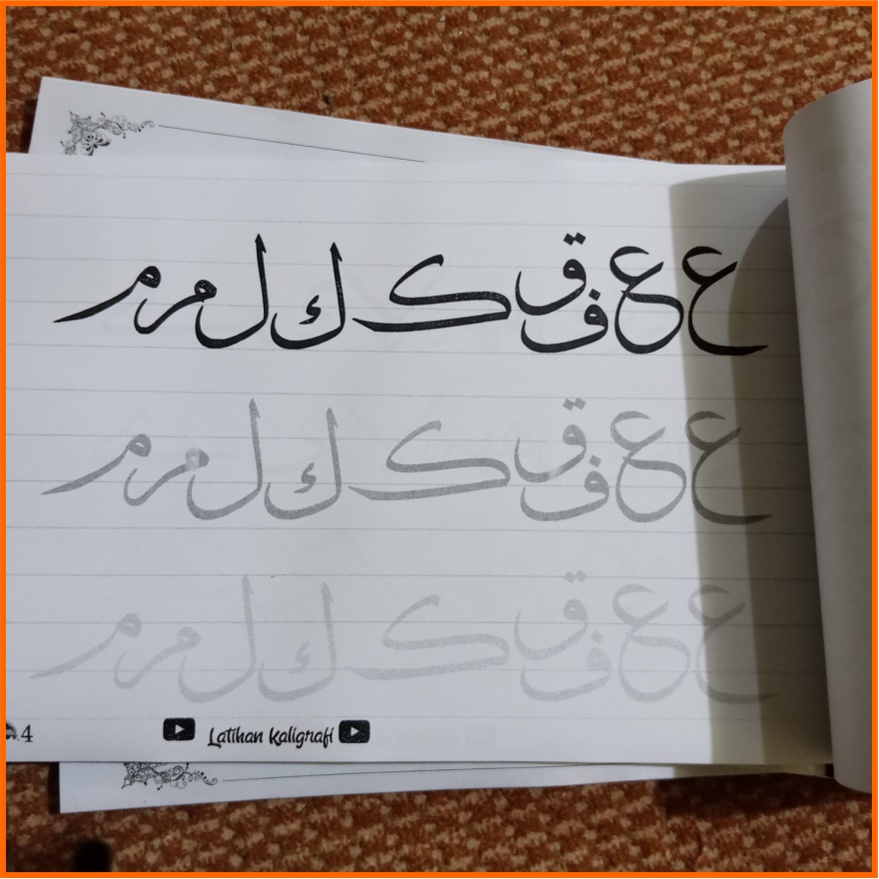 ع ع ف ق ک ك ل م م
ع ع ف ق ک ك ل م م
ع ع ف ق ک ك ل م م
4 Latihan Kaligrafi